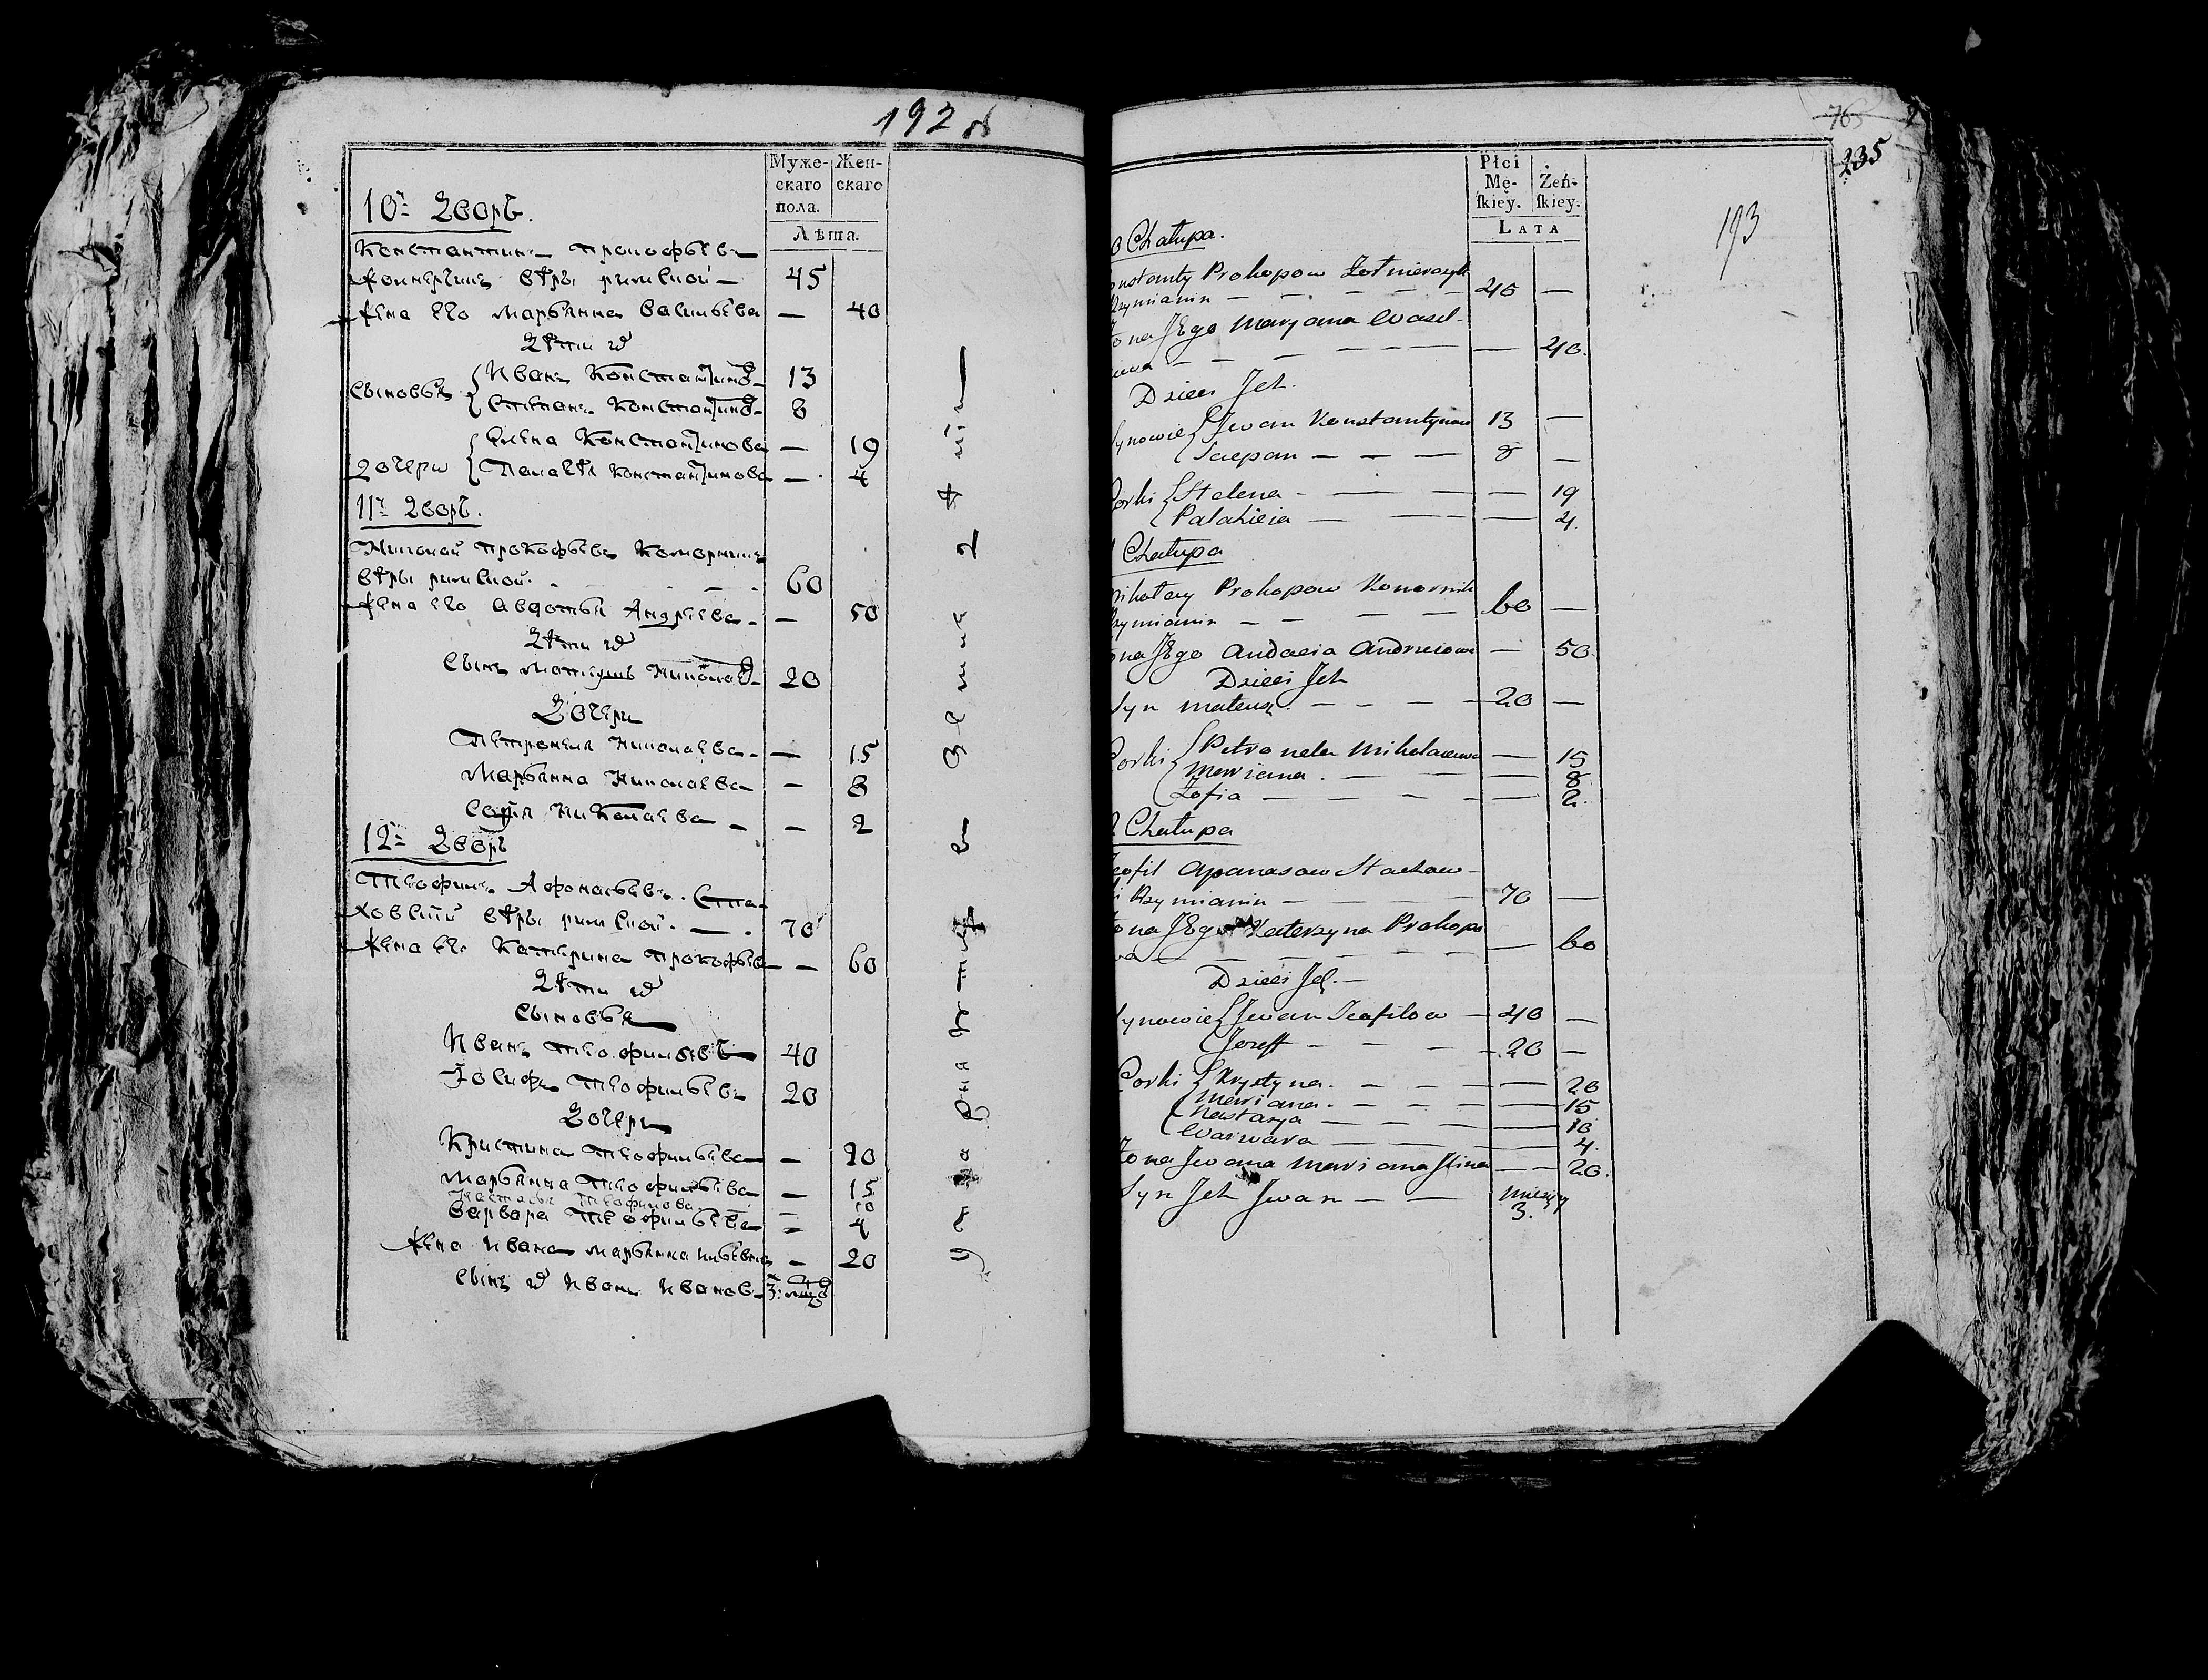 192 об
Муже- Жен-
скаго скаго
пола.
Лѣта.
10й Дворъ.
Константинъ Прокофьевъ
Жолнерчикъ вѣры римской — 45
Жена его Марьянна Васильева — 40
Дѣти их
Сыновья Иванъ Константинов 13
Степанъ Константинов 8
Елена Константинова — 19
Дочери Палагѣя Константинова — 4
11й Дворъ.
Николай Прокофьевъ Коморникъ
вѣры римской. 60
Жена его Авдотья Андреева — 50
Дѣти их
Сынъ Матеушъ Николаев 20
Дочери
Петронеля Николаева — 15
Марьянна Николаева — 8
Софія Николаева — 2
12й Дворъ
Теофилъ Афонасьевъ Ста-
ховскій вѣры римской. — 70
Жена его Катерина Прокофьева — 60
Дѣти их
Сыновья
Иванъ Теофильевъ 40
Іосифъ Теофильевъ 20
Дочери
Кристина Теофильева — 20
Марьянна Теофильева — 15
Настасья Теофилова — 10
Варвара Теофильева — 4
Жена Ивана Марьянна Ильевна — 20
Сынъ их Иванъ Иванов 3: мца
765
235
193
Płci
Mę- Żeń-
skiey. skiey.
LATA
Chałupa.
onstanty Prokopow Żołnierczyk
Rzymianin — 45 —
ona Jego Maryana Wasil-
ewa — — 40.
Dzieci Jch.
Synowie Jwan Konstantynow 13 —
Scepan — 8 —
Corki Helena — — 19
Palahieia — — 4.
Chałupa
Mikołay Prokopow Komornik
Rzymianin — 60 —
ona Jego Audocia Andrieiowa — 50.
Dzieci Jch
Syn Mateusz. — 20 —
Corki Petronela Mikołaiewa — 15
Mariana. — — 8
Zofia — — 2.
Chałupa
eofil Apanasow Stachow-
i Rzymianin — 70 —
Żona Jego Katerzyna Prokopo
wa — — 60
Dzieci Jch. —
Synowie Jwan Teofilow — 40 —
Jozeff — 20 —
Corki Krystyna. — — 20
Mariana. — — 15
Nastazya — — 10
Warwara — — 4.
Żona Jwana Mariana Jlina — — 20.
Syn Jch Jwan — — miesięcy
3.